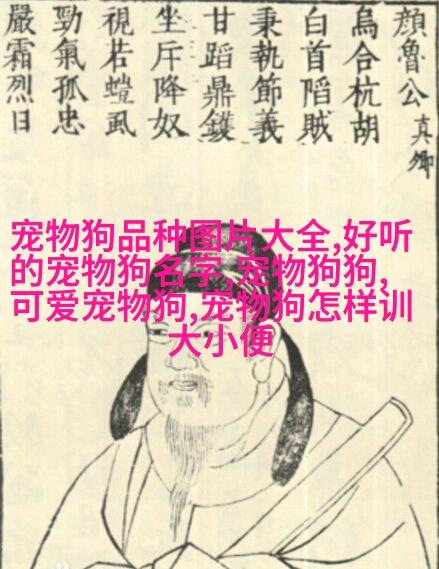 顏魯公真卿
烏合杭胡
白首陷賊
秉執節義
甘蹈鼎鑊
坐斥降奴
視若螘虱
勁氣孤忠
嚴霜烈日
宠物狗品种图片大全,好听
的宠物狗名字,宠物狗狗,
可爱宠物狗,宠物狗怎样训
大小便